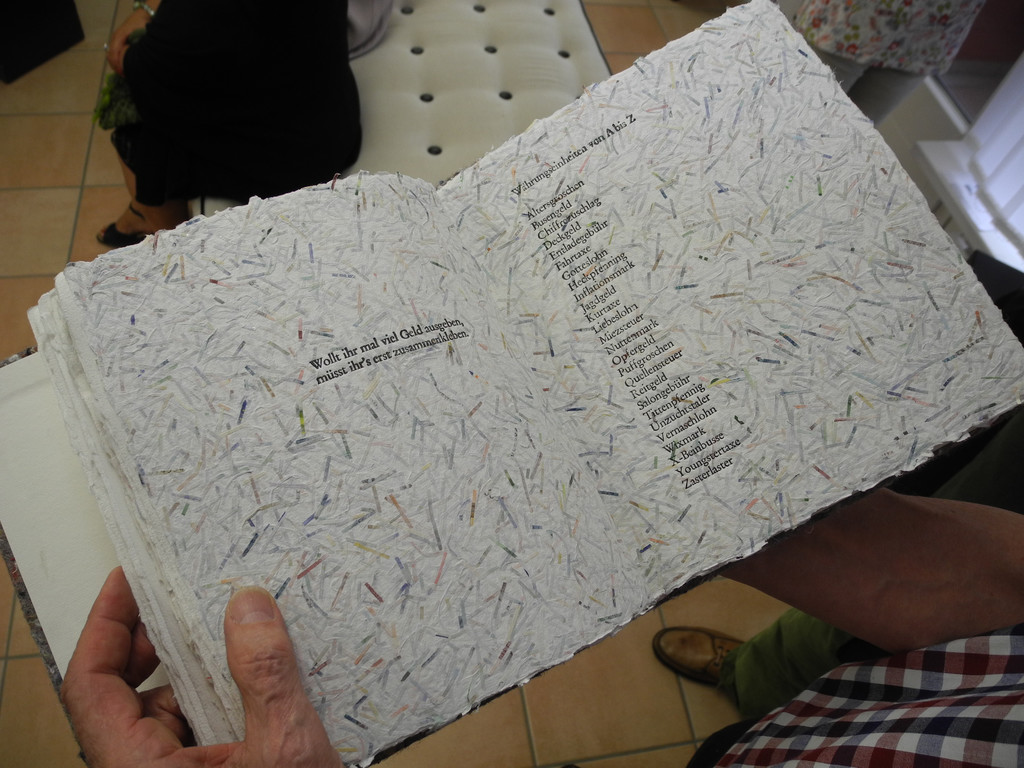 Wollt ihr mal viel Geld ausgeben,
müsst ihr's erst zusammenkleben.
Währungseinheiten von A bis Z
Altersgroschen
Busengeld
Chiffrezuschlag
Deckgeld
Entladegebühr
Fahrtaxe
Gotteslohn
Heckpfennig
Inflationsmark
Jagdgeld
Kurtaxe
Liebeslohn
Mietzsteuer
Nuttenmark
Opfergeld
Puffgroschen
Quellensteuer
Reitgeld
Salongebühr
Tittenpfennig
Unzuchtstaler
Vernaschlohn
Wixmark
X-Beinbusse
Youngstertaxe
Zasterlaster